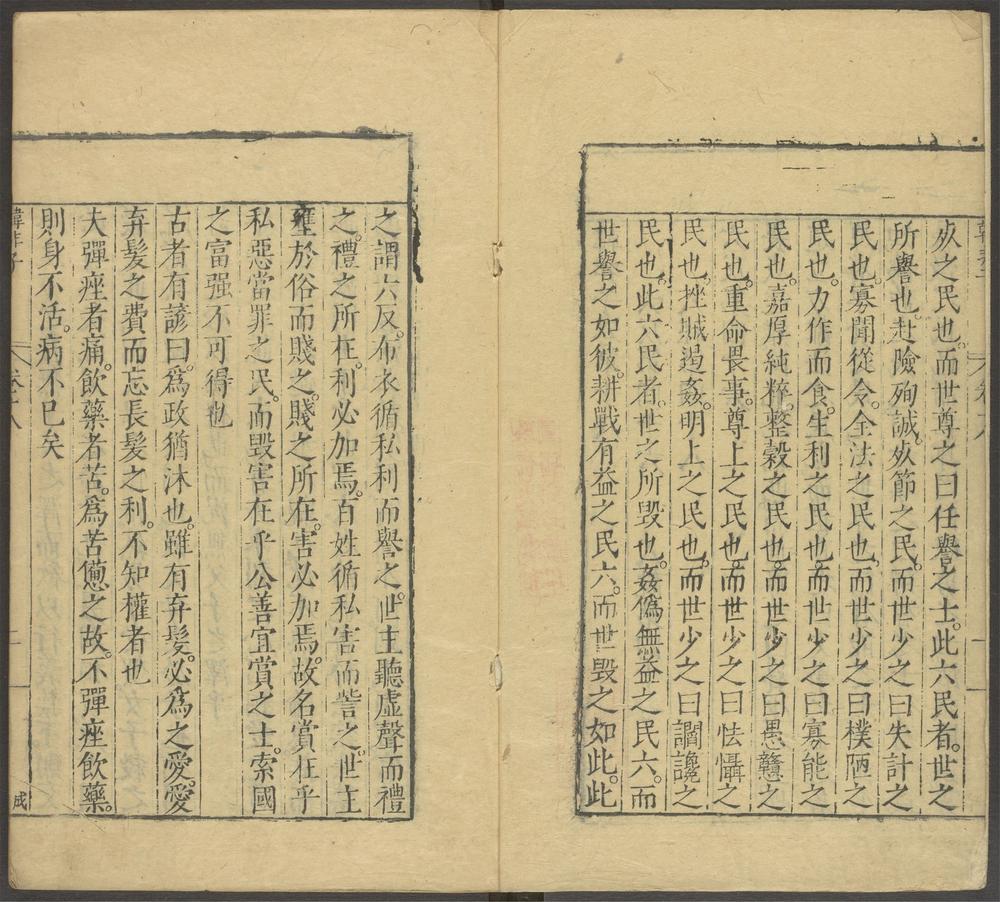 㱙之民也。而世尊之曰任譽之士。此六民者。世之
所譽也赴險殉誠。㱙節之民。而世少之曰失計之
民也。寡聞從令。全法之民也。而世少之曰樸陋之
民也。力作而食。生利之民也。而世少之曰寡能之
民也。嘉厚純粹。整穀之民也。而世少之曰愚戇之
民也。重命畏事。尊上之民也。而世少之曰怯懾之
民也。挫賊遏姦。明上之民也。而世少之曰讇讒之
民也。此六民者。世之所毀也。姦偽無益之民六。而
世譽之如彼。耕戰有益之民六。而世毀之如此。此
之謂六反。布衣循私利而譽之。世主聽虛聲而禮
之。禮之所在。利必加焉。百姓循私害而訾之。世主
壅於俗而賤之。賤之所在。害必加焉。故名賞在乎
私惡當罪之民。而毀害在乎公善宜賞之士。索國
之富强不可得也
古者有諺曰。為政猶沐也。雖有弃髮。必為之愛愛
弃髮之費而忘長髮之利。不知權者也
夫彈痤者痛。飲藥者苦。為苦憊之故。不彈痤飲藥。
則身不活。病不已矣
韓非子
卷十八
二
成